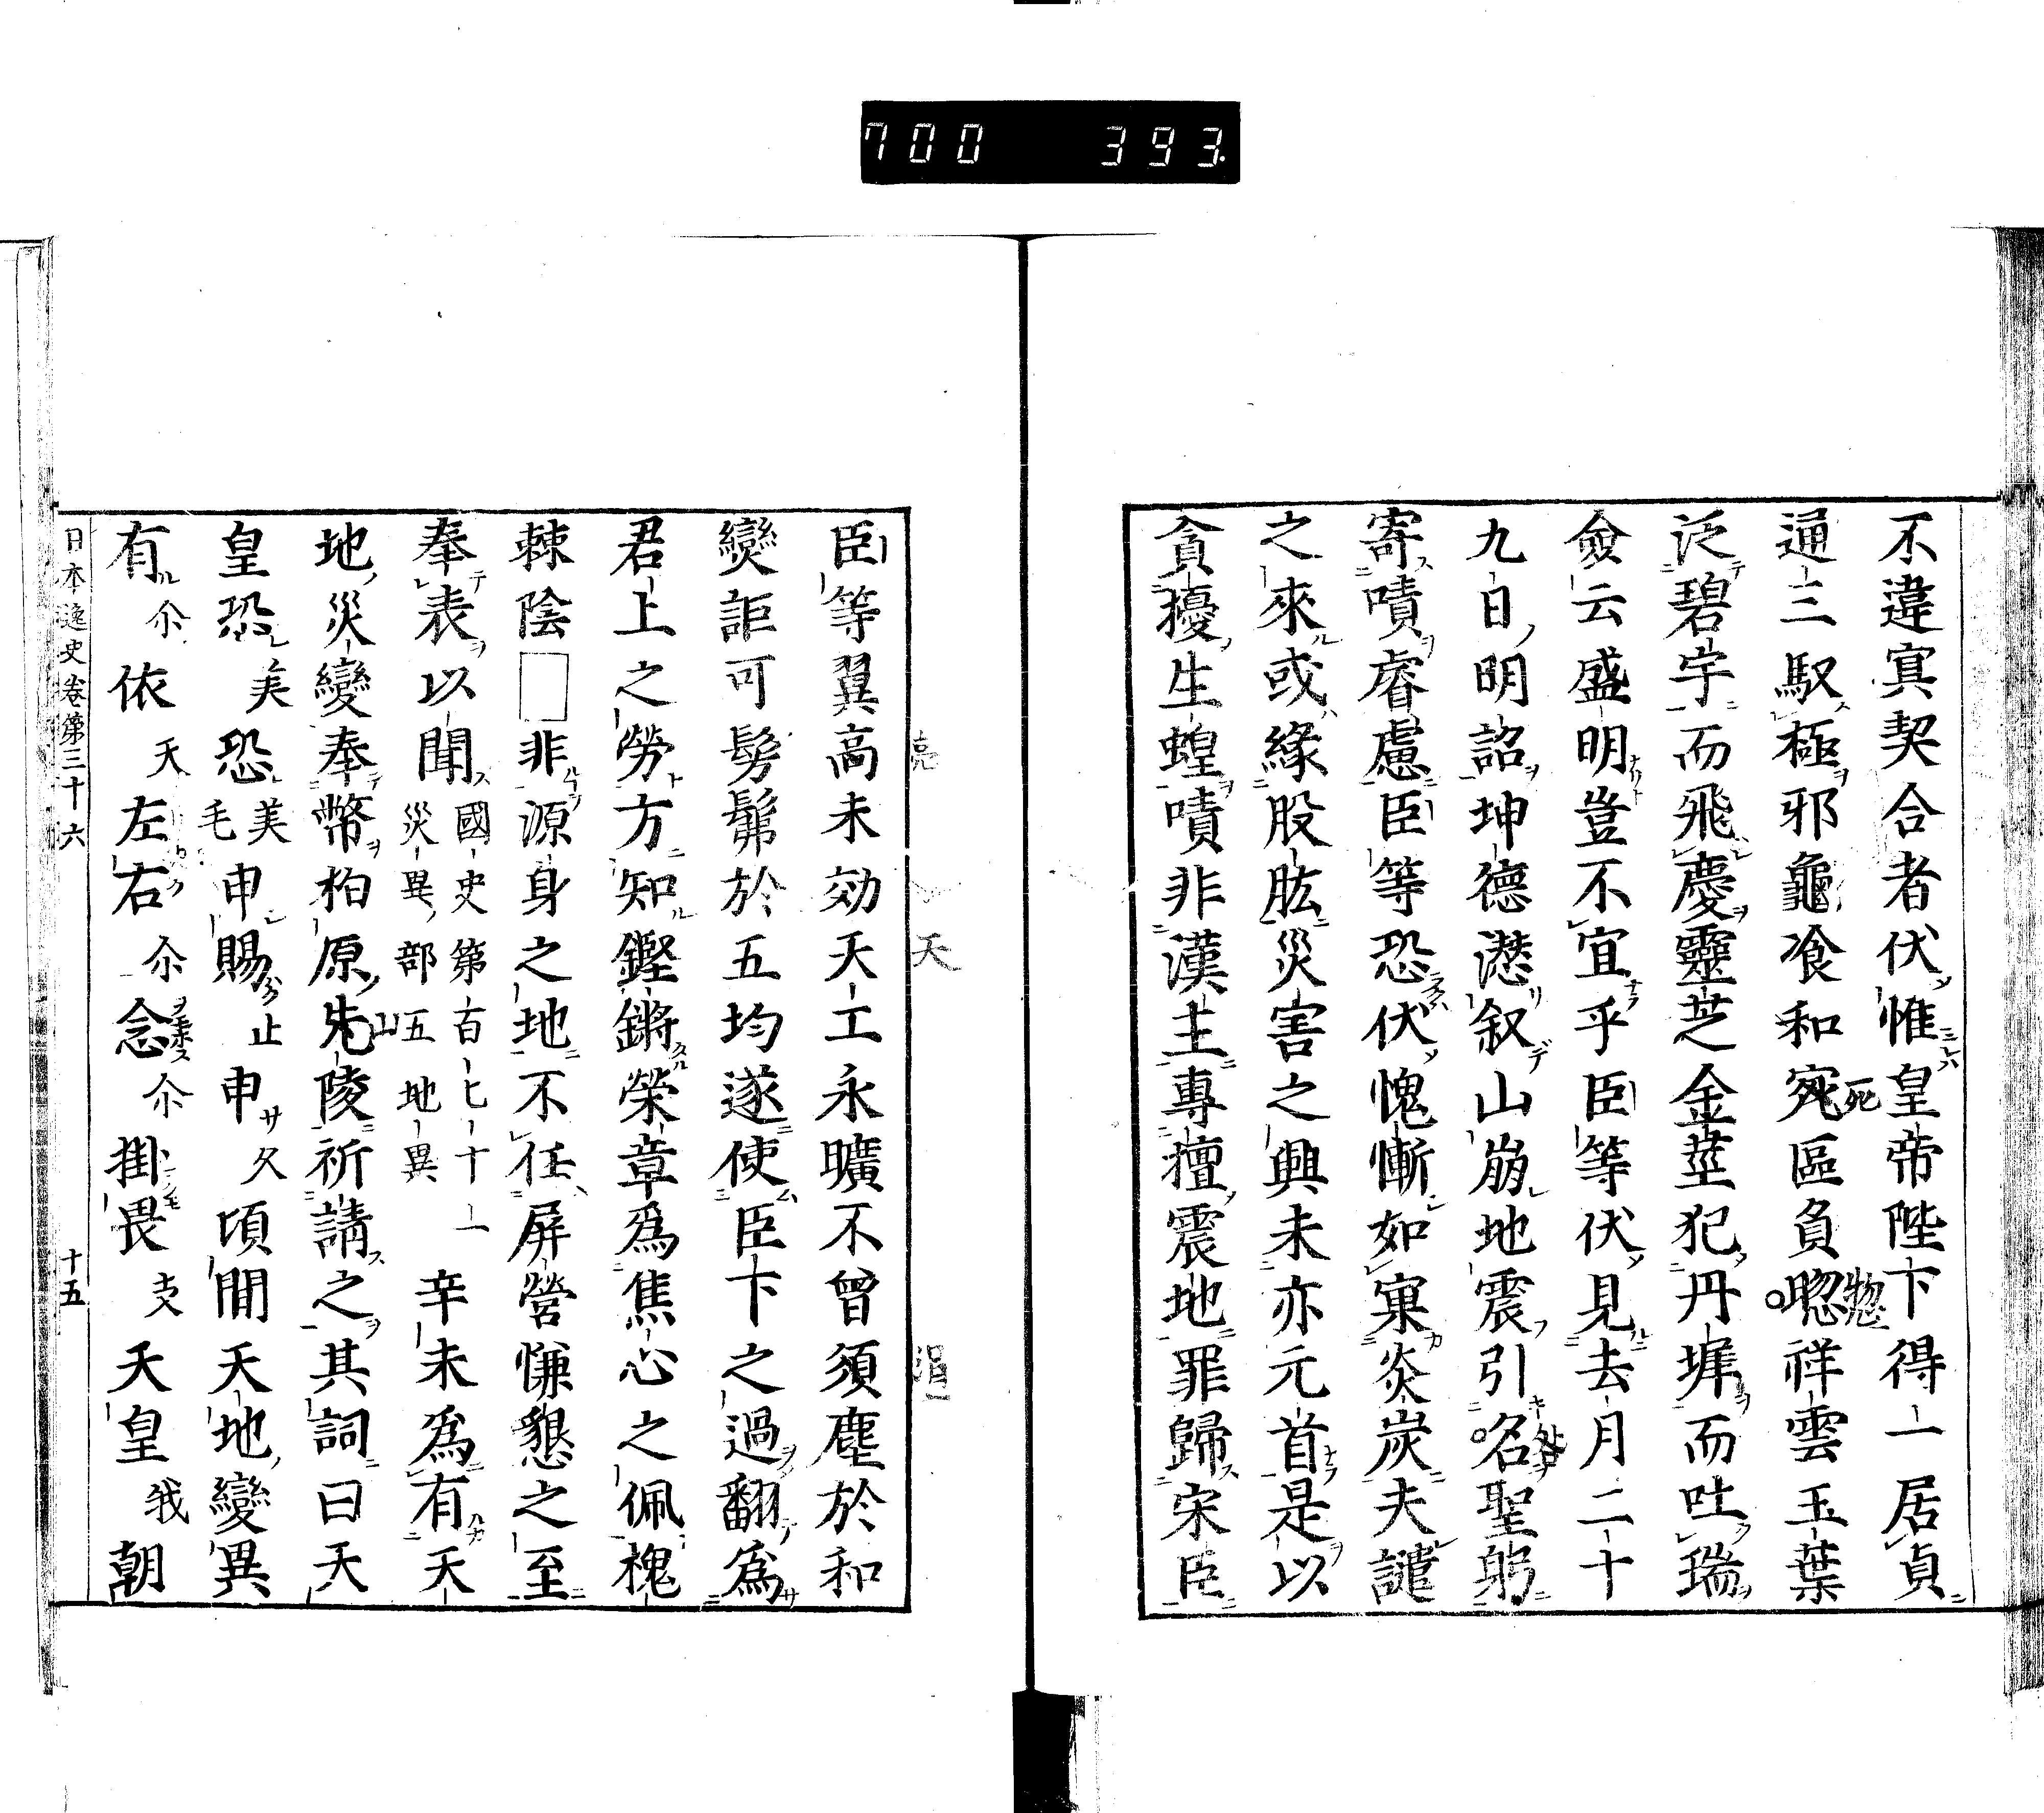 700 393.
不違寘契合者伏惟皇帝陛下得一居貞
通三馭極邪龜飡和宛區負惚祥雲玉葉
泛碧宇而飛慶靈芝金莖犯丹墀而吐瑞
僉云盛明豈不宜乎臣等伏見去月二十
九日明詔坤德濳叙山崩地震引名聖躬
寄嘖睿慮臣等恐伏愧慚如寘炎炭夫譴
之來或緣股肱災害之興未亦元首是以
貪擾生蝗嘖非漢主專擅震地罪歸宋臣
臣等翼高未効天工永曠不曾須塵於和
爕詎可髣髴於五均遂使臣下之過翻為
君上之勞方知鏗鏘榮章為焦心之佩槐
棘陰□非源身之地不任屏營慊懇之至
奉表以聞國史第百七十一災異部五地異 辛未為有天
地災變奉幣柏原先陵祈請之其詞曰天
皇恐美恐美毛申賜止申久頃間天地變異
有尒依天左右尒念尒掛畏支天皇我朝
日本逸史卷第三十六 十五
死
惚
山
亮
天
涓